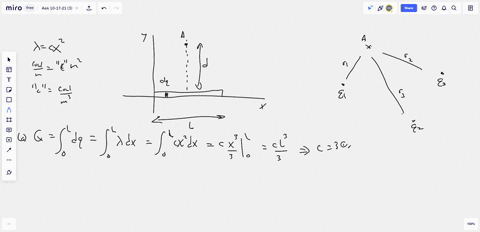 miro
Ask 10-17-21 (3)
Share
y
A
λ = cx²
coul/m = "c" m²
"c" = coul/m³
dq
d
x
L
A
r₁
r₂
r₃
q₁
q₃
q₂
(a) Q = ∫₀ᴸ dq = ∫₀ᴸ λ dx = ∫₀ᴸ cx² dx = c x³/3 |₀ᴸ = cL³/3 ⇒ c = 3Q
100%